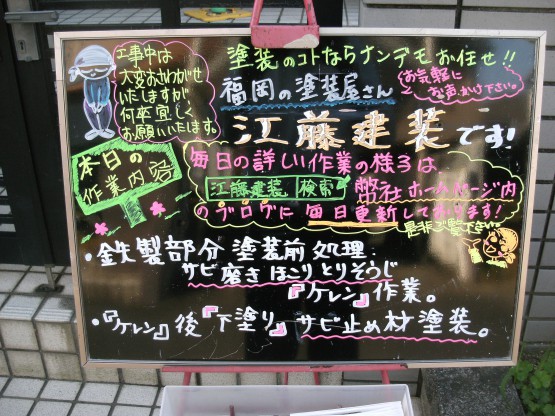 工事中は
大変おさわがせ
いたしますが
何卒宜しく
お願いいたします。
塗装のコトならナンデモお任せ!!
福岡の塗装屋さん
お気軽に
お声かけ下さい。
江藤建装です!
本日の
作業内容
毎日の詳しい作業の様子は、
江藤建装 検索 弊社ホームページ内
のブログに毎日更新しております!
是非ご覧下さい
・鉄製部分塗装前処理
サビ磨きほこりとりそうじ
『ケレン』作業。
・『ケレン』後『下塗り』サビ止め材塗装。